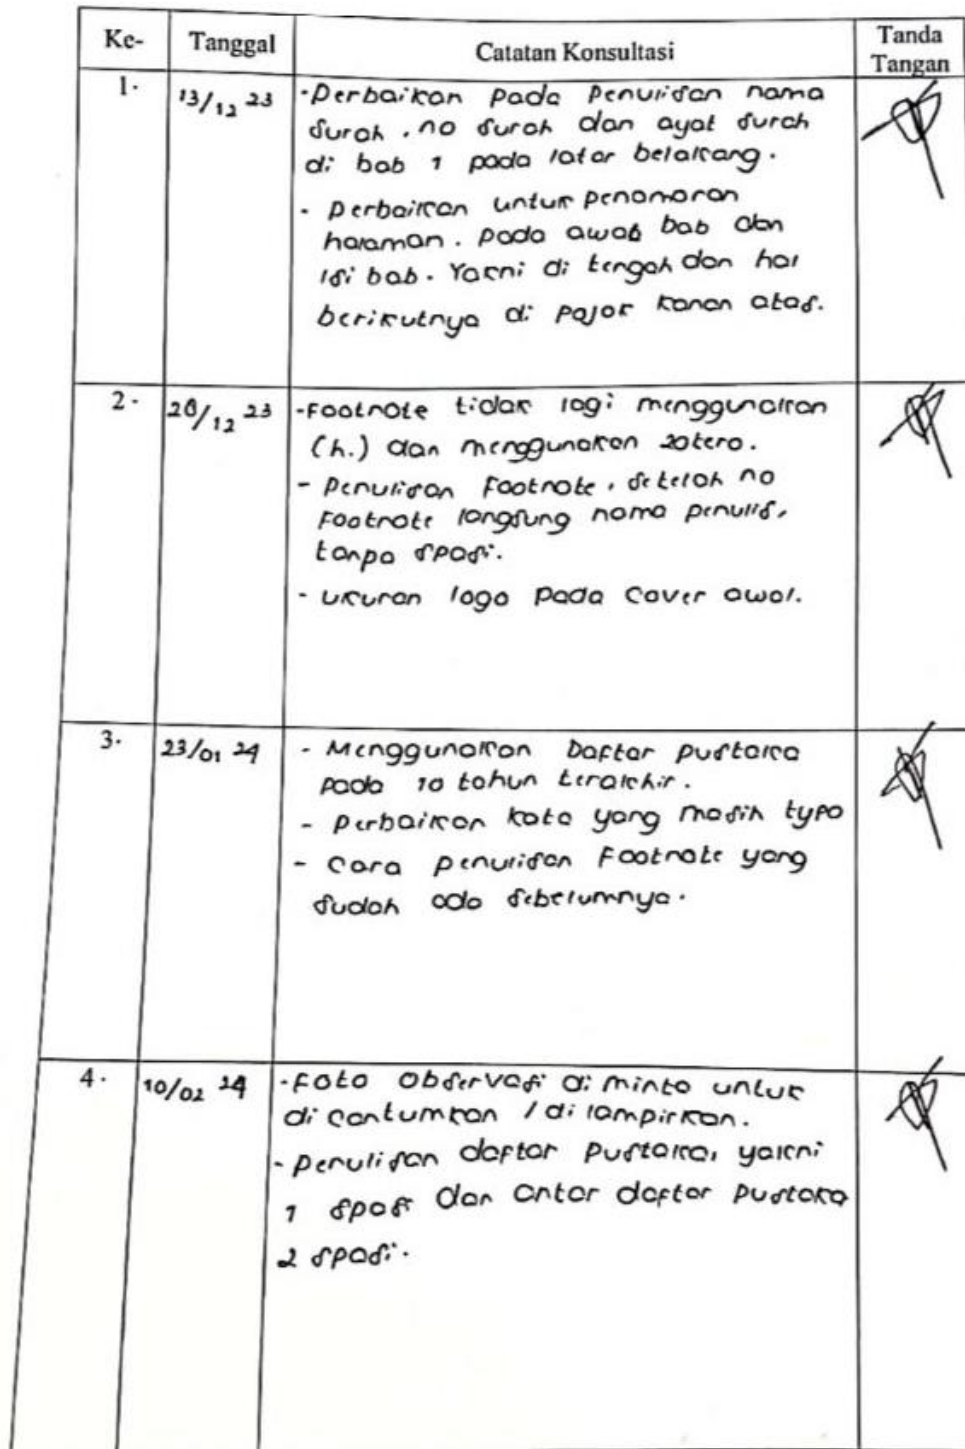 Ke- Tanggal Catatan Konsultasi Tanda Tangan
1. 13/12 23 - Perbaikan pada penulisan nama
surah, no surah dan ayat surah
di bab 1 pada latar belakang.
- Perbaikan untuk penomoran
halaman. pada awab bab dan
isi bab. Yakni di tengah dan hal
berikutnya di pojok kanan atas.
2. 20/12 23 - Footnote tidak lagi menggunakan
(h.) dan menggunakan zotero.
- penulisan Footnote, setelah no
Footnote langsung nama penulis,
tanpa spasi.
- ukuran logo pada Cover awal.
3. 23/01 24 - Menggunakan Daftar pustaka
pada 10 tahun terakhir.
- perbaikan kata yang masih typo
- Cara penulisan Footnote yang
sudah ada sebelumnya.
4. 10/02 24 - Foto Observasi di minta untuk
di cantumkan / di lampirkan.
- penulisan daftar pustaka, yakni
1 spasi dan antar daftar pustaka
2 spasi.